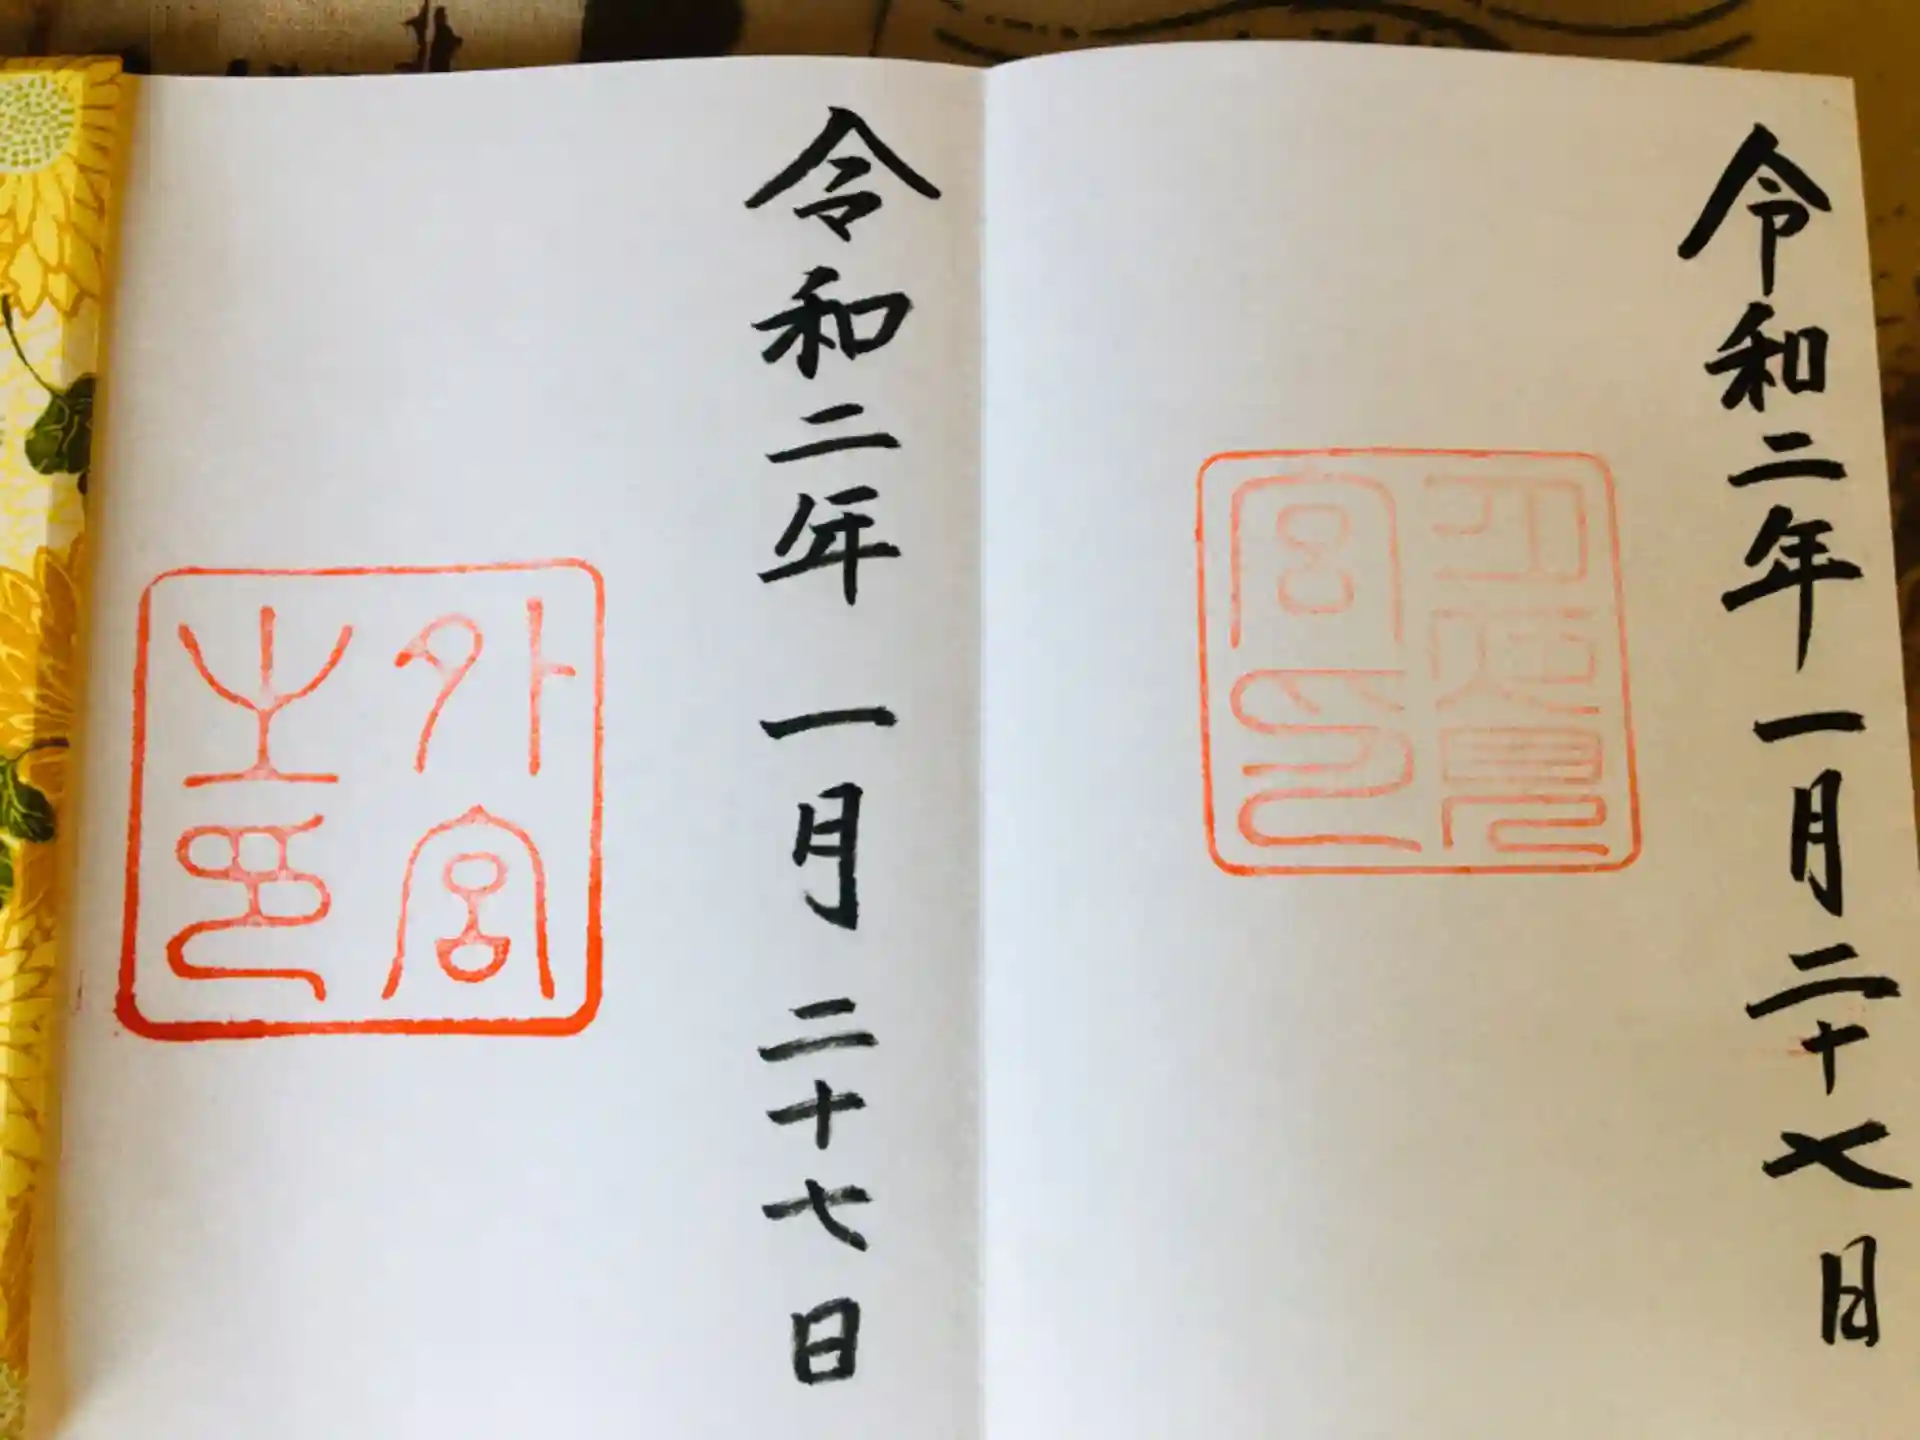 令和二年一月二十七日
月夜見
宮印
令和二年一月二十七日
外宮
之印